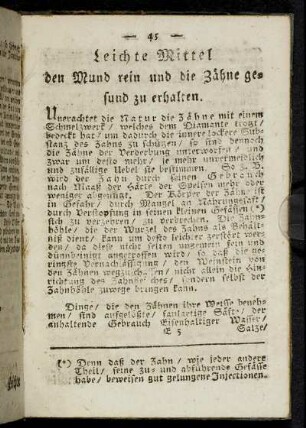 — 45 —
Leichte Mittel
den Mund rein und die Zähne ge-
sund zu erhalten.
Unerachtet die Natur die Zähne mit einem
Schmelzwerk / welches dem Diamante trozt /
bedeckt hat / um dadurch die innere lockere Sub-
stanz des Zahns zu schüzen / so sind dennoch
die Zähne der Verderbung unterworfen / und
zwar um desto mehr / je mehr unvermeidlich
und zufällige Uebel sie bestimmen. So z. B.
wird der Zahn durch seinen Gebrauch
nach Maaß der Härte der Speisen mehr oder
weniger abgeschliffen. Der Körper der Zähne ist
in Gefahr / durch Mangel an Nahrungssaft /
durch Verstopfung in seinen kleinen Gefäßen (*)
sich zu verzehren / zu zerbrechen. Die Zahn-
höhle / die der Wurzel des Zahns als Behält-
niß dient / kann um desto leichter zerstört wer-
den / da diese nicht selten ungemein fein und
dünnbeinigt angetroffen wird / so daß die ge-
ringste Vernachläßigung / den Weinstein von
den Zähnen wegzuschaffen / nicht allein die Hin-
richtung des Zahnfleisches / sondern selbst der
Zahnhöhle zuwege bringen kann.
Dinge / die den Zähnen ihre Weisse beneh-
men / sind aufgelößte / faulartige Säfte / der
anhaltende Gebrauch Eisenhaltiger Wasser /
E 5 Salze /
(*) Denn daß der Zahn / wie jeder andere
Theil / seine zu- und abführende Gefässe
habe / beweisen gut gelungene Injectionen.